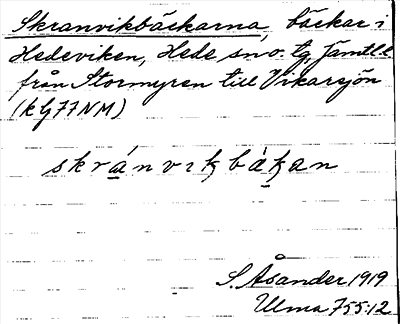 Skranvikbäckarna, bäckar i
Hedeviken, Hede sn o. tg, Jämtl. l.
från Stormyren till Vikarsjön
(k G77NM)
skránvikbákan
S. Åsander 1919
Ulma 755:12